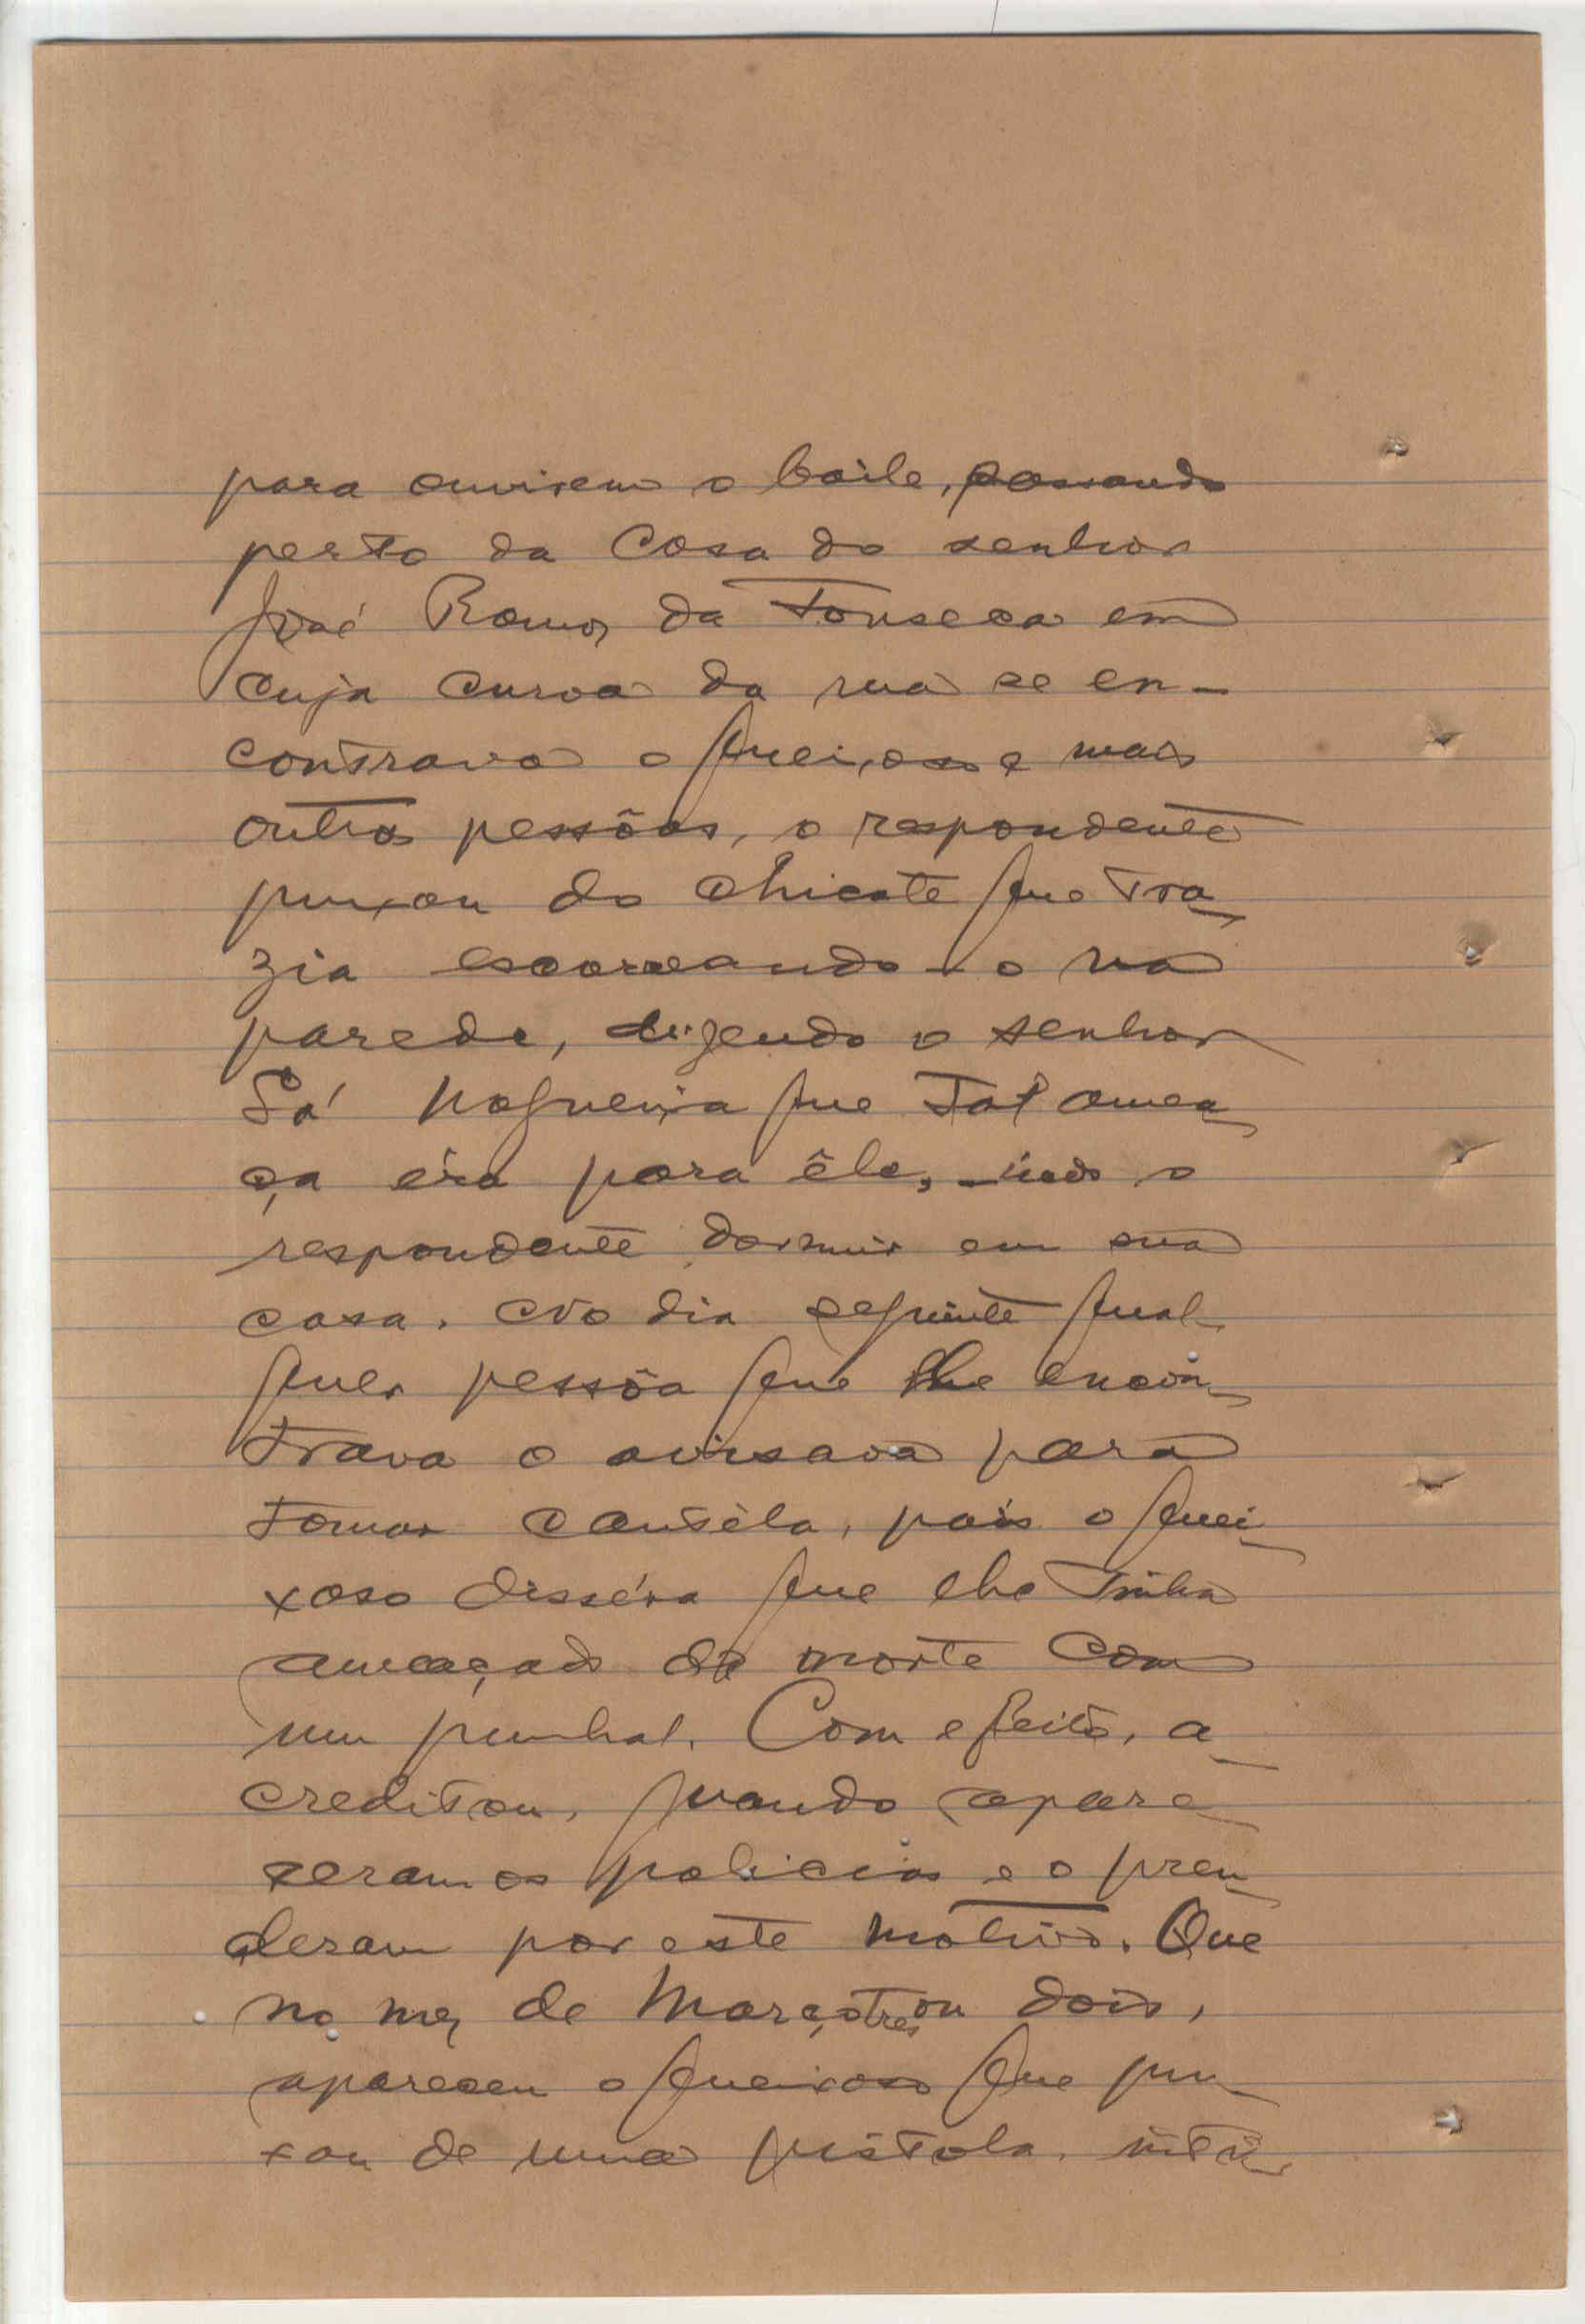 para ouvirem o baile, passando
perto da Casa do senhor
José Ramos da Fonseca em
cuja curva da rua se en-
contrava o queixoso e mais
outras pessôas, o respondente
puxou do chicote que tra-
zia escorreando-o na
parede, dizendo o senhor
Sá Nogueira que tal amea-
ça éra para êle, indo o
respondente dormir em sua
casa. No dia seguinte qual-
quer pessôa que lhe encon-
trava o avisava para
tomar cautéla, pois o quei-
xoso disséra que ele tinha
ameaçado de morte com
um punhal. Com efeito, a-
creditou, quando apare-
ceram os policias e o pren-
deram por este motivo. Que
no mez de Março, tres ou dois,
apareceu o queixoso que pu-
xou de uma pistola, inti-